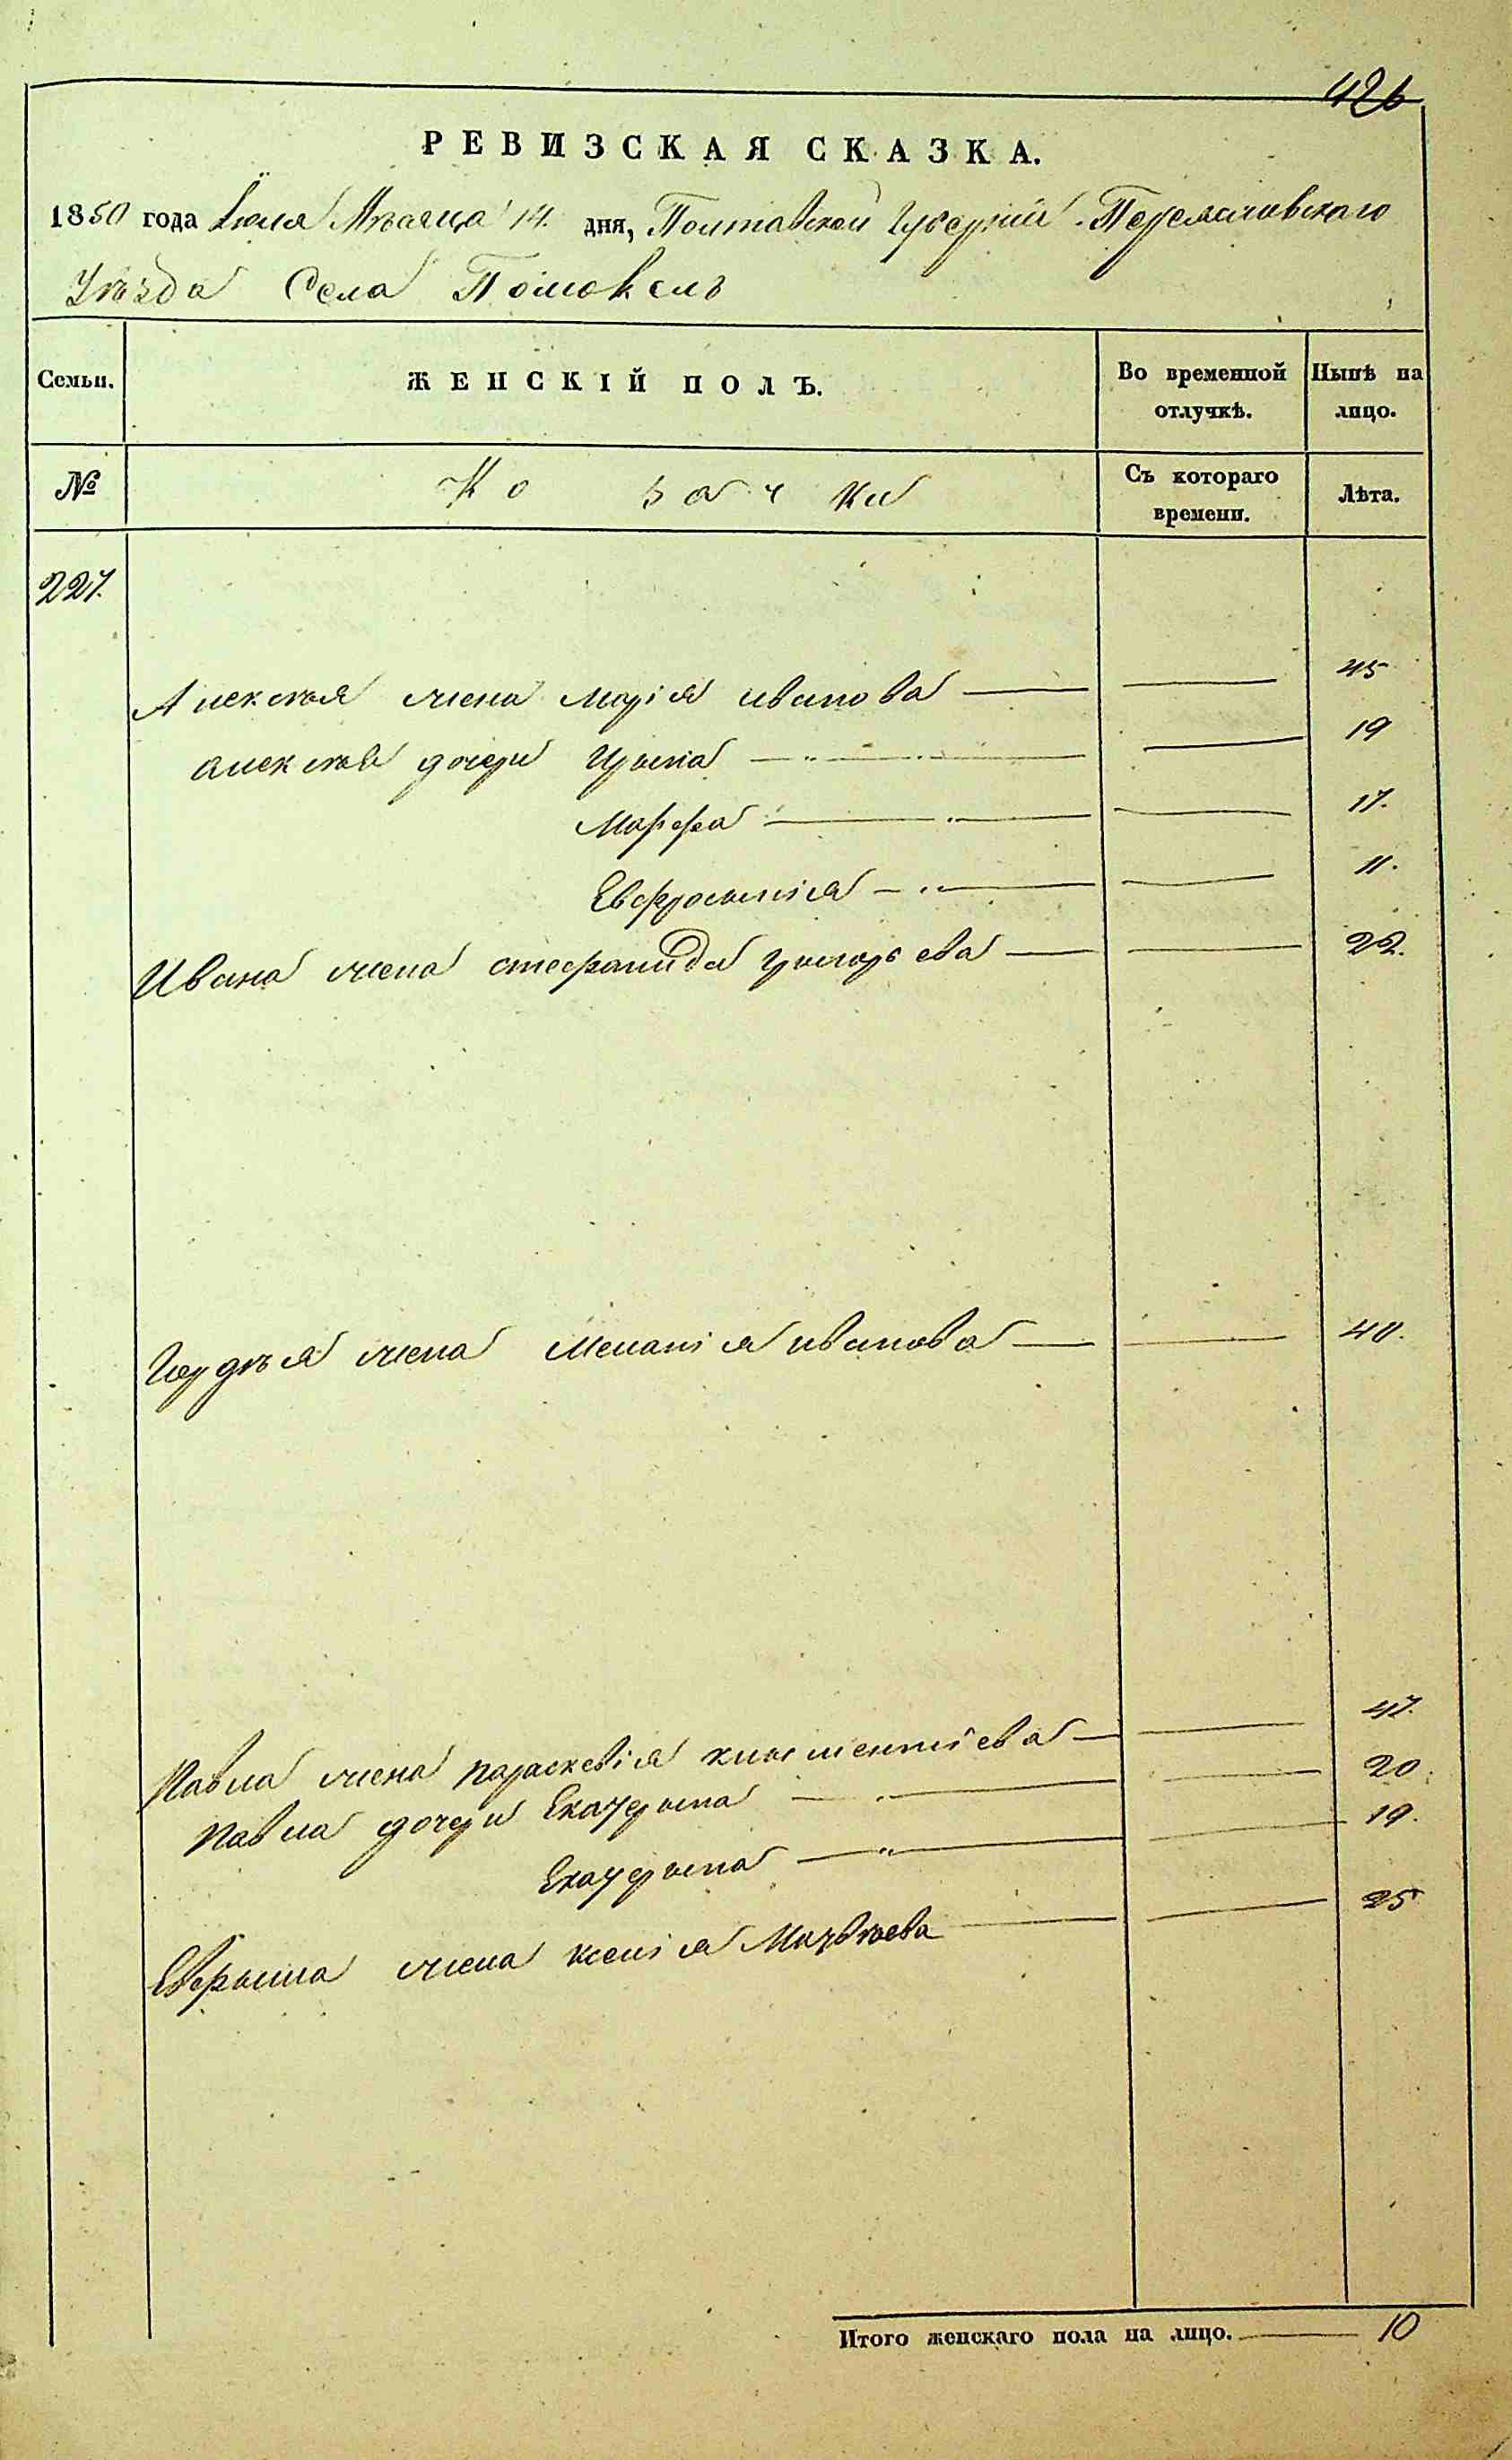 426
РЕВИЗСКАЯ СКАЗКА.
1850 года Іюля Мѣсяца 14. дня, Полтавской Губерніи Переяславскаго
Уѣзда Села Помоклъ
Семьи. ЖЕНСКІЙ ПОЛЪ. Во временной отлучкѣ. Нынѣ на лицо.
№ Козачки Съ котораго времени. Лѣта.
227.
Алексѣя жена Марія иванова 45
алексѣя дочери Ирина 19
Марфа 17.
Евфросинія 11.
Ивана жена стефанида григорьева 22.
Гордѣя жена Меланія иванова 40.
Павла жена параскевія климентіева 47.
павла дочери Екатерина 20.
Екатерина 19.
жена ксенія Матвѣева 25
Итого женскаго пола на лицо. 10